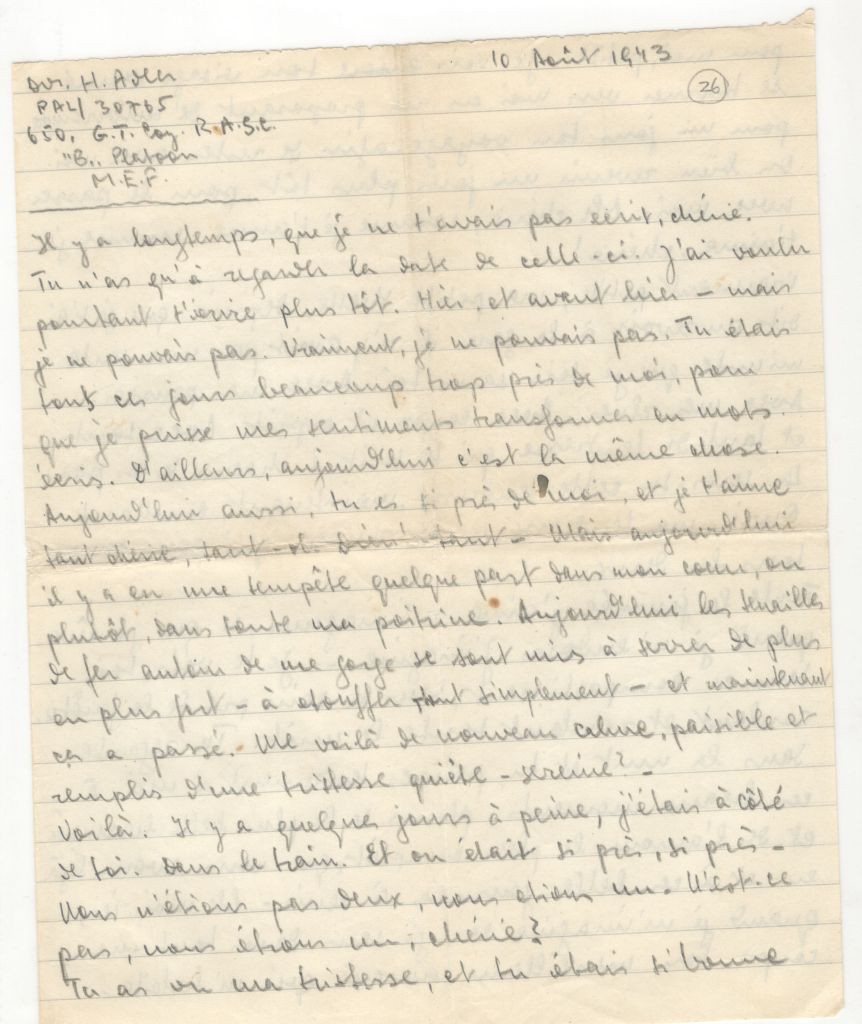 10 Août 1943
26
Dvr. H. Adler
PAL/30765
650, G.T. Coy. R.A.S.C.
"B" Platoon
M.E.F.
Il y a longtemps, que je ne t'avais pas écrit, chérie.
Tu n'as qu'à regarder la date de celle-ci. J'ai voulu
pourtant t'écrire plus tôt. Hier, et avant hier – mais
je ne pouvais pas. Vraiment, je ne pouvais pas. Tu étais
tous ces jours beaucoup trop près de moi, pour
que je puisse mes sentiments transformer en mots
écris. D'ailleurs, aujourd'hui c'est la même chose.
Aujourd'hui aussi, tu es si près de moi, et je t'aime
tant chérie, tant – oh Dieu! tant – Mais aujourd'hui
il y a eu une tempête quelque part dans mon coeur, ou
plutôt, dans toute ma poitrine. Aujourd'hui les tenailles
de fer autour de me gorge se sont mis à serrer de plus
en plus fort – à etouffer tout simplement – et maintenant
ça a passé. Me voilà de nouveau calme, paisible et
remplis d'une tristesse quiéte – sereine? –
Voilà. Il y a quelques jours à peine, j'étais à côté
de toi. Dans le train. Et on était si près, si près –
Nous n'étions pas deux, nous etions un. N'est-ce
pas, nous étions un, chérie?
Tu as vu ma tristesse, et tu étais si bonne